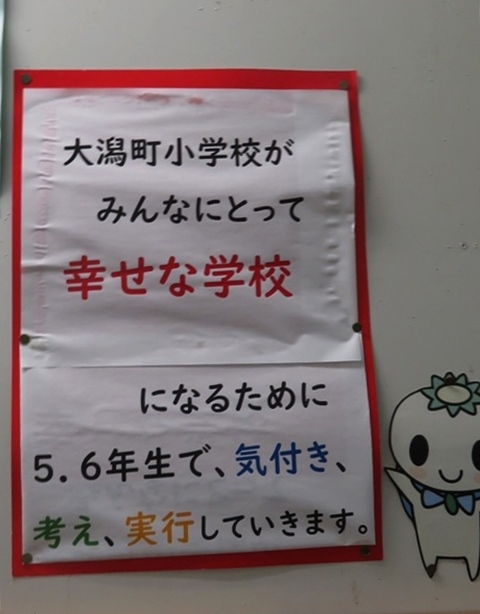 大潟町小学校が
みんなにとって
幸せな学校
になるために
5.6年生で、気付き、
考え、実行していきます。